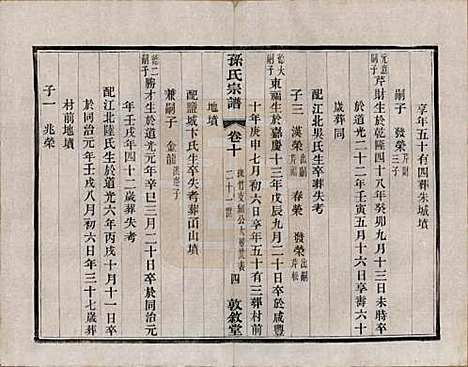 享年五十有四葬朱城墳
嗣子　發榮芹財三子
元意嗣子芹財生於乾隆四十八年癸卯九月十三日未時卒
於道光二十二年壬寅五月十六日享壽六十
歲葬同
配江北吳氏生卒葬失考
子三　漢榮出嗣芹　春榮　發榮出嗣芹松
德大嗣子東福生於嘉慶十三年戊辰九月二十日卒於咸豐
十年庚申七月初六日享年五十有三葬村前
孫氏宗譜
卷十
二十一世
四
敦敘堂
地墳
配鹽城卞氏生卒失考葬山山墳
兼嗣子　金龍
德二嗣子勝才生於道光元年辛巳三月二十日卒於同治元
年壬戌年四十二歲葬失考
配江北陸氏生於道光六年丙戌十月十一日卒
於同治元年壬戌八月初六日年三十七歲葬
村前地墳
子一　兆榮